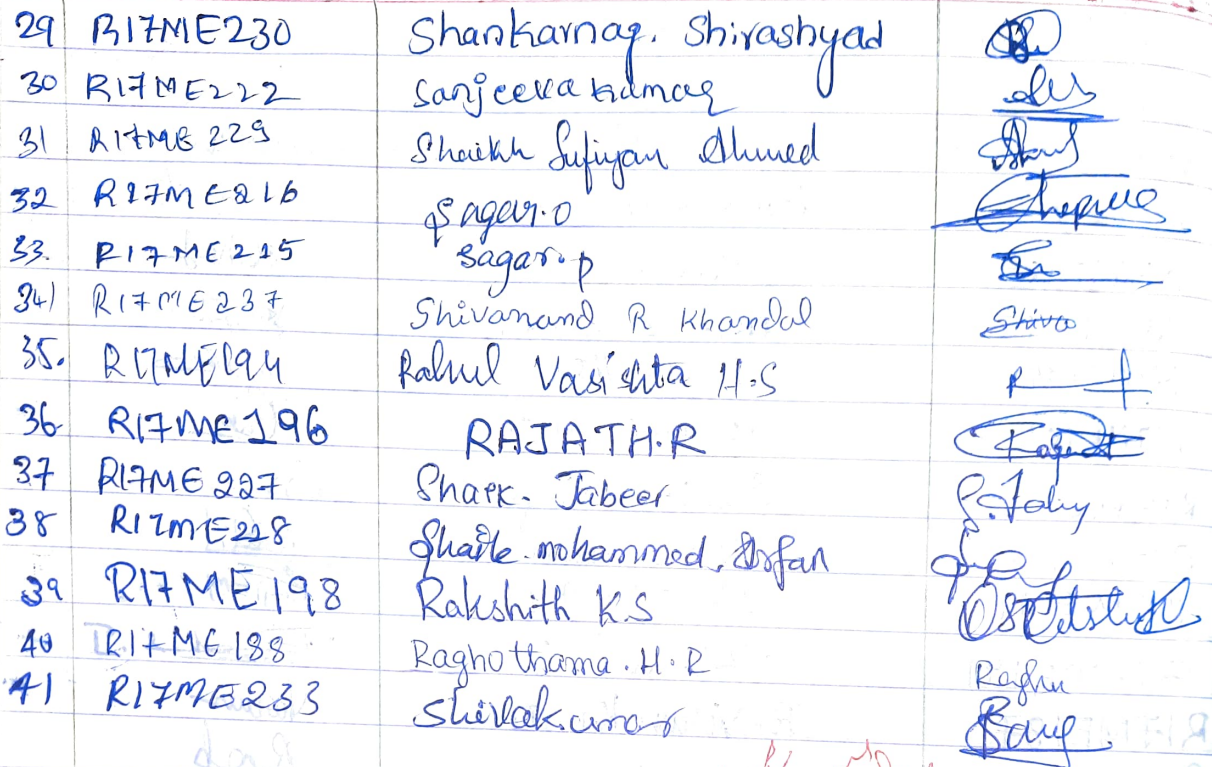 29 R17ME230 Shankarnag. Shirashyad
30 R17ME222 Sanjeeva kumar
31 R17ME 229 Shaikh Sufiyan Ahmed
32 R17ME216 Sagar.O
33. R17ME215 Sagar.p
34) R17ME237 Shivanand R Khandal Shiva
35. R17ME194 Rahul Vasishta H.S
36 R17ME196 RAJATH.R
37 R17ME227 Shaik. Jabeer
38 R17ME228 Shaik.mohammed.Irfan
39 R17ME198 Rakshith K.S
40 R17ME188 Raghothama.H.R Raghu
41 R17ME233 Shivakumar